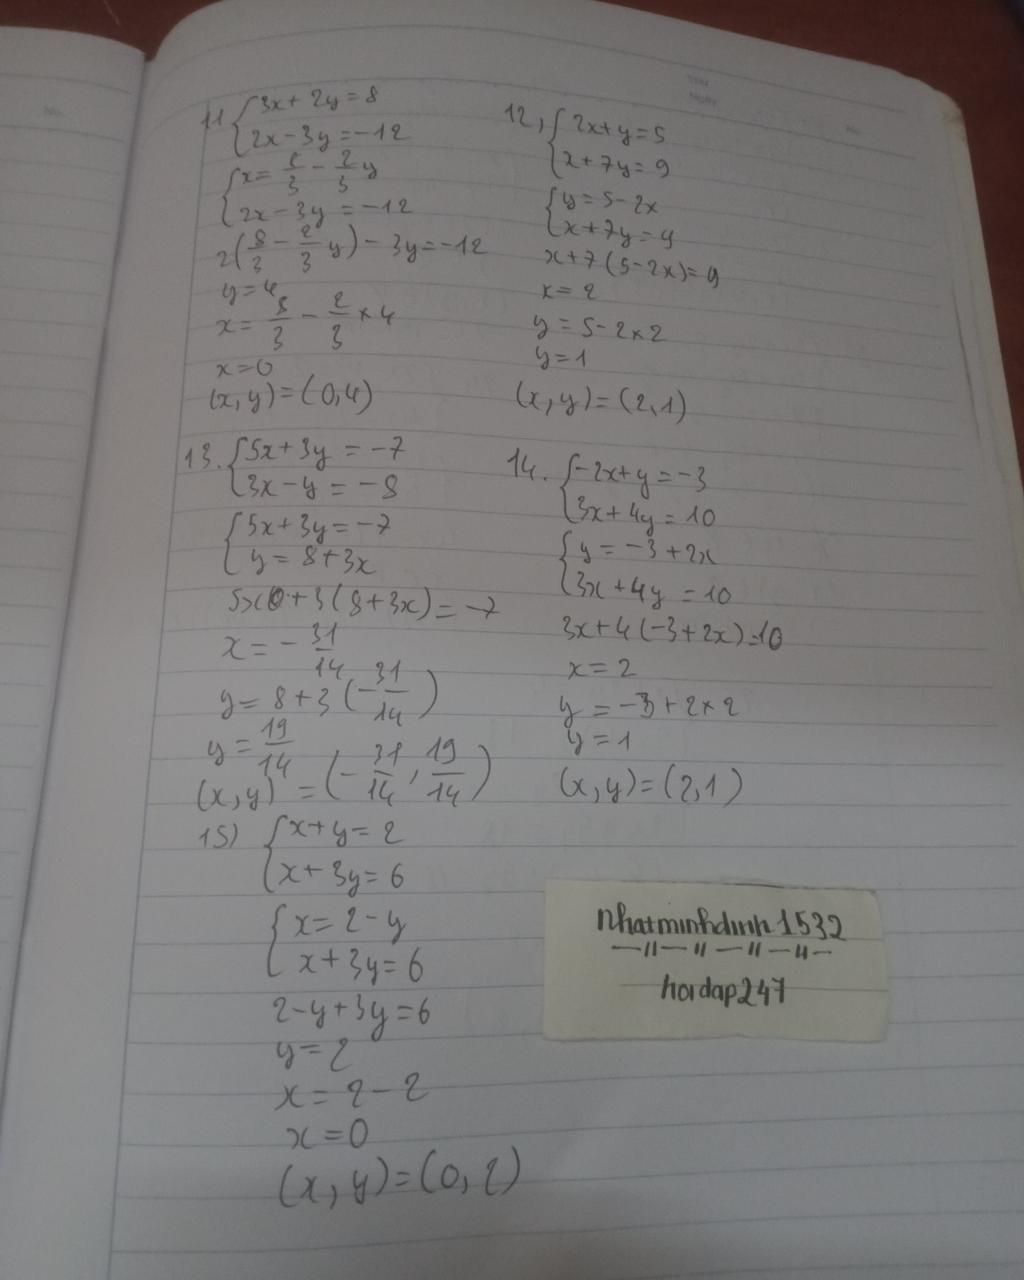 11 { 3x + 2y = 8
2x - 3y = -12
{ x = 8/3 - 2/3 y
2x - 3y = -12
2(8/3 - 2/3 y) - 3y = -12
y = 4
x = 8/3 - 2/3 × 4
x = 0
(x, y) = (0,4)
12, { 2x + y = 5
x + 7y = 9
{ y = 5 - 2x
x + 7y = 9
x + 7(5 - 2x) = 9
x = 2
y = 5 - 2 × 2
y = 1
(x, y) = (2,1)
13. { 5x + 3y = -7
3x - y = -8
{ 5x + 3y = -7
y = 8 + 3x
5x + 3(8 + 3x) = -7
x = - 31/14
y = 8 + 3(- 31/14)
y = 19/14
(x, y) = (- 31/14, 19/14)
14. { -2x + y = -3
3x + 4y = 10
{ y = -3 + 2x
3x + 4y = 10
3x + 4(-3 + 2x) = 10
x = 2
y = -3 + 2 × 2
y = 1
(x, y) = (2,1)
15) { x + y = 2
x + 3y = 6
{ x = 2 - y
x + 3y = 6
2 - y + 3y = 6
y = 2
x = 2 - 2
x = 0
(x, y) = (0, 2)
nhatminhdinh1532
hoidap247